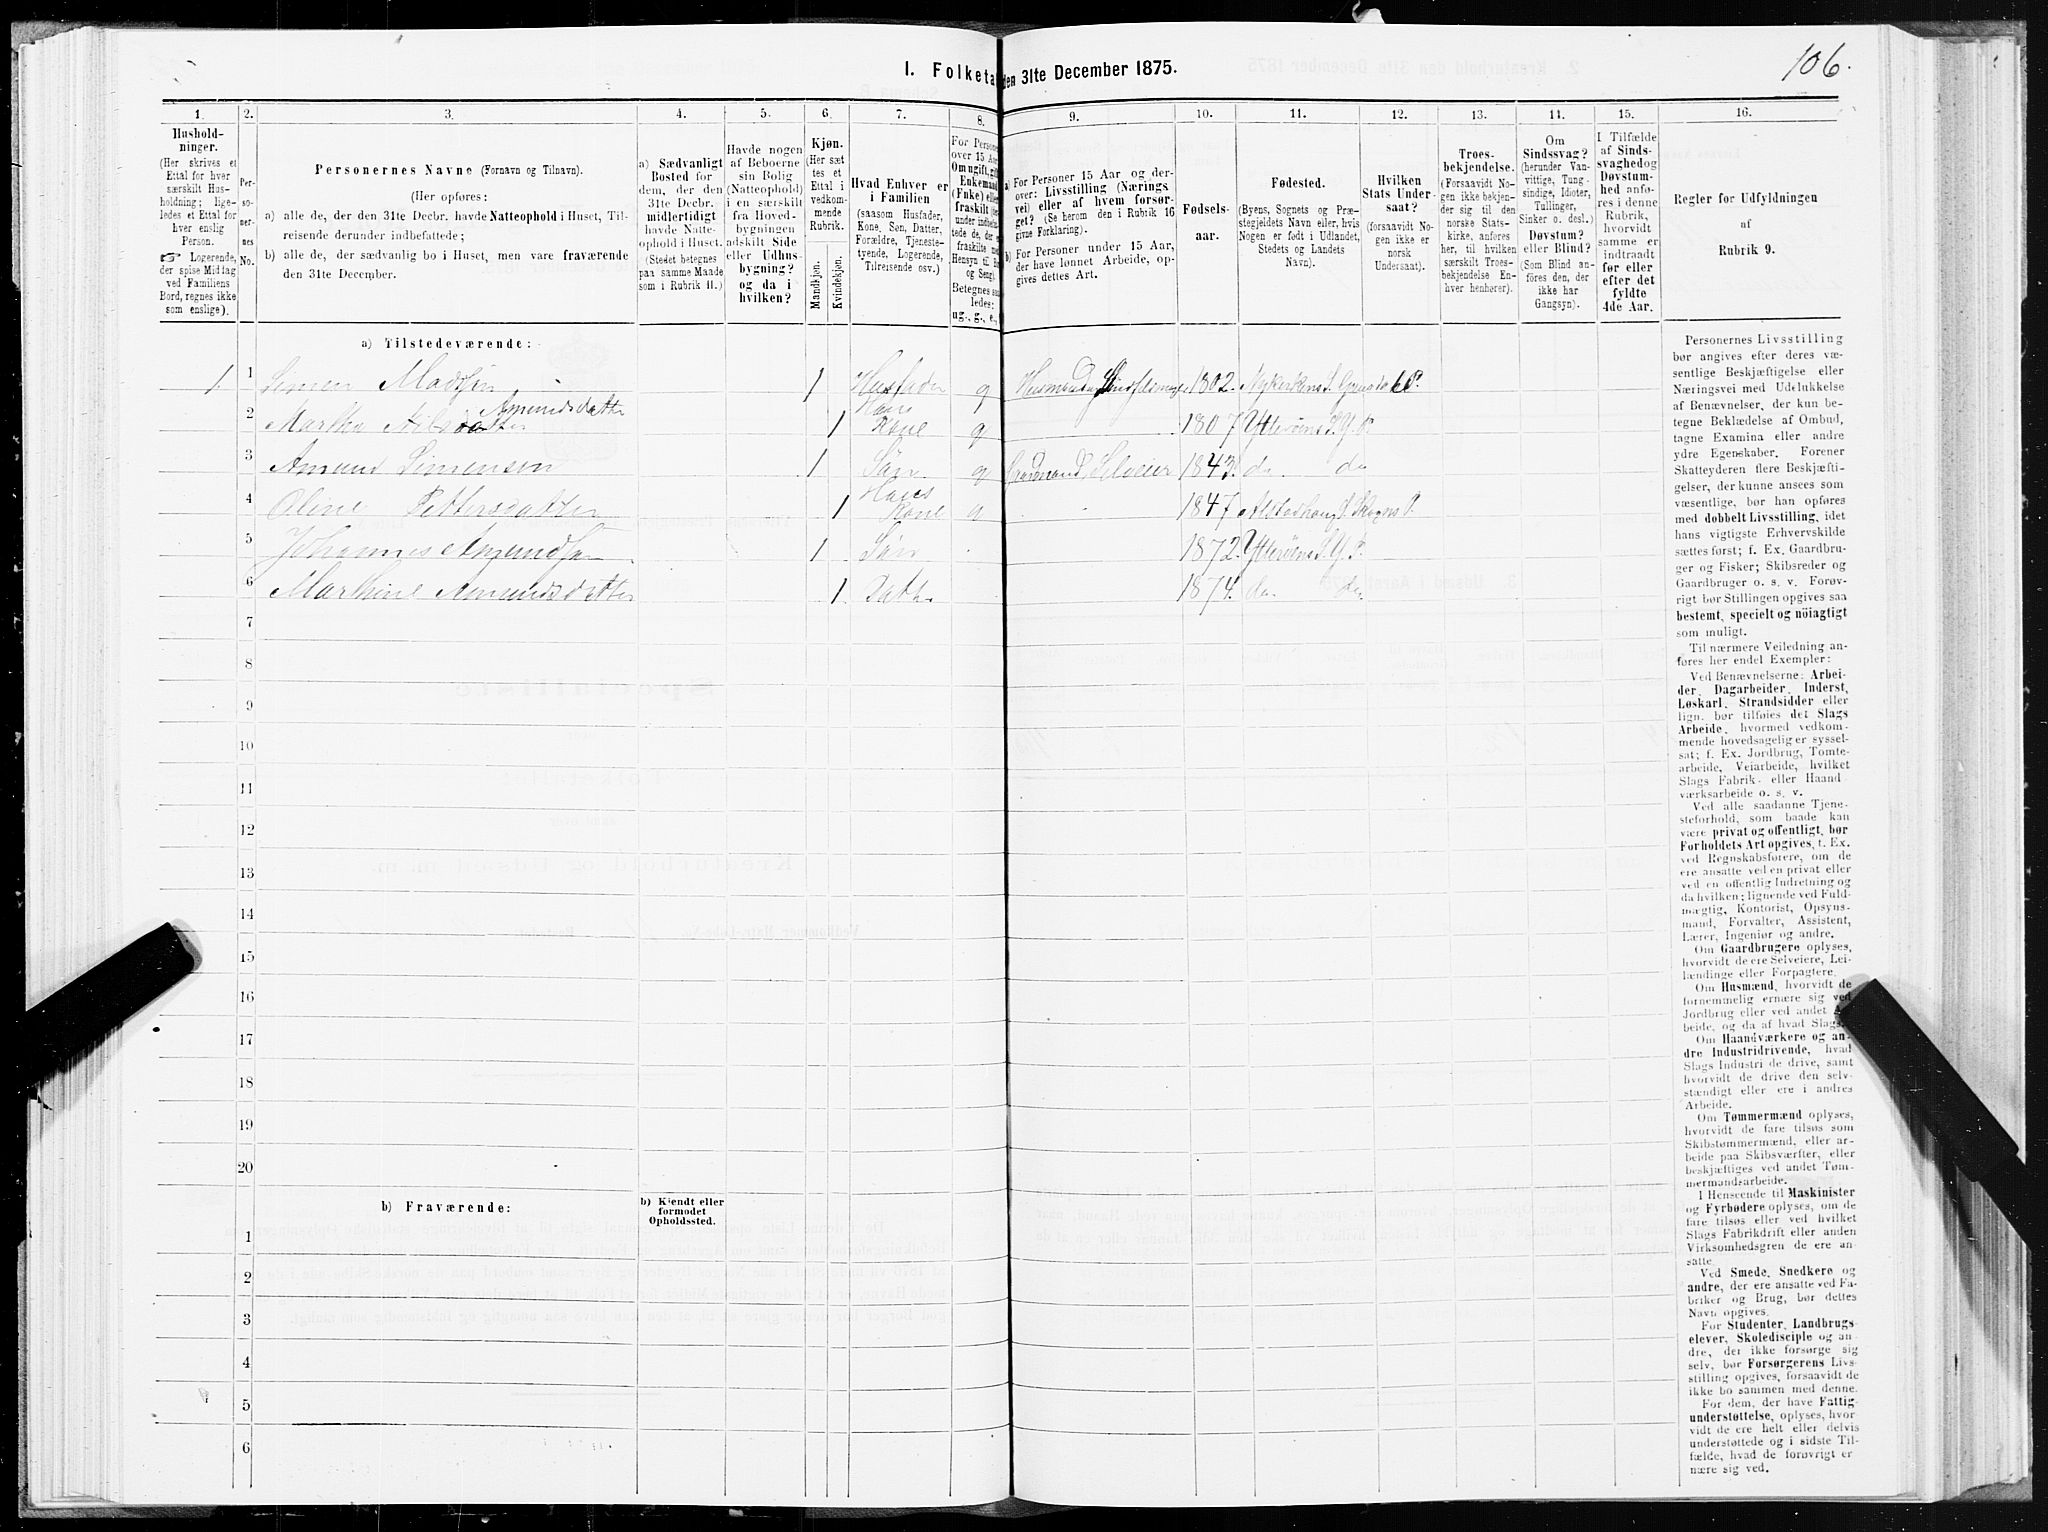 106.
I. Folketa den 31te December 1875.
1. 2. 3. 4. 5. 6. 7. 8. 9. 10. 11. 12. 13. 14. 15. 16.
Hushold-
ninger.
(Her skrives et
Ettal for hver
særskilt Hus-
holdning; lige-
ledes et Ettal for
hver enslig
Person.
☞ Logerende,
der spise Middag
ved Familiens
Bord, regnes ikke
som enslige).
Per-
so-
ner-
nes
No.
Personernes Navne (Fornavn og Tilnavn).
(Her opføres:
a) alle de, der den 31te Decbr. havde Natteophold i Huset, Til-
reisende derunder indbefattede;
b) alle de, der sædvanlig bo i Huset, men vare fraværende
den 31te December.
a) Sædvanligt
Bosted for
dem, der den
31te Decbr.
midlertidigt
havde Natte-
ophold i Huset.
(Stedet betegnes
paa samme Maade
som i Rubrik 11.)
Havde nogen
af Beboerne
sin Bolig
(Natteophold)
i en særskilt
fra Hoved-
bygningen
adskilt Side
eller Udhus-
bygning?
og da i
hvilken?
Kjøn.
(Her sæt
tes et
Ettal i
vedkom-
mende
Rubrik.
Mandkjøn.
Kvindekjøn.
Hvad Enhver er
i Familien
(saasom Husfader,
Kone, Søn, Datter,
Forældre, Tjeneste-
tyende, Logerende,
Tilreisende osv.)
For Personer
over 15 Aar
Om ugift, gift
Enkemand
(Enke) eller
fraskilt
Betegnes saa
ledes:
ug., g., e.,
a) For Personer 15 Aar og der-
over: Livsstilling (Nærings
vei) eller af hvem forsør-
get? (Se herom den i Rubrik 16
givne Forklaring).
b) For Personer under 15 Aar,
der have lønnet Arbeide, op-
gives dettes Art.
Fødsels-
aar.
Fødested.
(Byens, Sognets og Præ-
stegjeldets Navn eller, hvis
Nogen er født i Udlandet,
Stedets og Landets
Navn).
Hvilken
Stats Under-
saat?
(forsaavidt No-
gen ikke er
norsk
Undersaat).
Troes-
bekjendelse.
(Forsaavidt No-
gen ikke bekjen-
der sig til den
norske Stats-
kirke, anføres
her, til hvilken
særskilt Troes-
bekjendelse En-
hver henhører).
Om
Sindssvag?
(herunder Van-
vittige, Tung-
sindige, Idioter,
Tullinger,
Sinker o. desl.)
Døvstum?
eller Blind?
(Som Blind an-
føres den, der
ikke har
Gangsyn).
I Tilfælde
af Sinds-
svaghed og
Døvstum-
hed anfø-
res i denne
Rubrik,
hvorvidt
samme er
indtraadt
før eller
efter det
fyldte
4de Aar.
Regler for Udfyldningen
af
Rubrik 9.
a) Tilstedeværende:
1 1 Simen Madsen 1 Husfader g 1802. P.
2 Martha Nilsdatter Amundsdatter 1 Hans Kone g 1807 Ytterøens S. Y. P.
3 Amund Simensen 1 Søn g Gaardmand Selveier 1843. do do
4 Oline Pettersdatter 1 Hans Kone g 1847 Alstadhoug S. Skogns P.
5 Johannes Amundsen 1 Søn 1872. Ytterøens S. Y. P.
6 Marthine Amundsdatter 1 Datter 1874. do do
7
8
9
10
11
12
13
14
15
16
17
18
19
20
b) Fraværende:
b) Kjendt eller
formodet
Opholdssted.
1
2
3
4
5
6
Personernes Livsstilling
bør angives efter deres væ-
sentlige Beskjæftigelse eller
Næringsvei med Udelukkelse
af Benævnelser, der kun be-
tegne Beklædelse af Ombud,
tagne Examina eller andre
ydre Egenskaber. Forener
Skatteyderen flere Beskjæfti-
gelser, der kunne ansees som
væsentlige, bør han opføres
med dobbelt Livsstilling, idet
hans vigtigste Erhvervskilde
sættes først; f. Ex. Gaardbru-
ger og Fisker; Skibsreder og
Gaardbruger o. s. v. Forøv-
rigt bør Stillingen opgives saa
bestemt, specielt og nöiagtigt
som muligt.
Til nærmere Veiledning an-
føres her endel Exempler:
Ved Benævnelserne: Arbei-
der, Dagarbeider, Inderst,
Løskarl, Strandsidder eller
lign. bør tilføies det Slags
Arbeide, hvormed vedkom-
mende hovedsagelig er syssel-
sat; f. Ex. Jordbrug, Tomte-
arbeide, Veiarbeide, hvilket
Slags Fabrik- eller Haand-
værksarbeide o. s. v.
Ved alle saadanne Tjene-
steforhold, som baade kan
være privat og offentligt, bør
Forholdets Art opgives, t. Ex.
ved Regnskabsførere, om de
ere ansatte ved en privat eller
ved en offentlig Indretning og
da hvilken; lignende ved Fuld-
mægtig, Kontorist, Opsyns-
mand, Forvalter, Assistent,
Lærer, Ingeniør og andre.
Om Gaardbrugere oplyses,
hvorvidt de ere Selveiere, Lei-
lændinge eller Forpagtere.
Om Husmænd, hvorvidt de
fornemmelig ernære sig ved
Jordbrug eller ved andet Ar-
beide, og da af hvad Slags.
Om Haandværkere og an-
dre Industridrivende, hvad
Slags Industri de drive, samt
hvorvidt de drive den selv-
stændigt eller ere i andres
Arbeide.
Om Tømmermænd oplyses,
hvorvidt de fare tilsøs som
Skibstømmermænd, eller ar-
beide paa Skibsværfter, eller
beskjæftiges ved andet Tøm-
mermandsarbeide.
I Henseende til Maskinister
og Fyrbødere oplyses, om de
fare tilsøs eller ved hvilket
Slags Fabrikdrift eller anden
Virksomhedsgren de ere an-
satte.
Ved Smede, Snedkere og
andre, der ere ansatte ved Fa-
briker og Brug, bør dettes
Navn opgives.
For Studenter, Landbrugs-
elever, Skoledisciple og an-
dre, der ikke forsørge sig
selv, bør Forsørgerens Livs-
stilling opgives, forsaavidt de
ikke bo sammen med denne.
For dem, der have Fattig-
understøttelse, oplyses, hvor-
vidt de ere helt eller delvis
understøttede og i sidste Til-
fælde, hvad de forøvrigt er
nære sig ved.